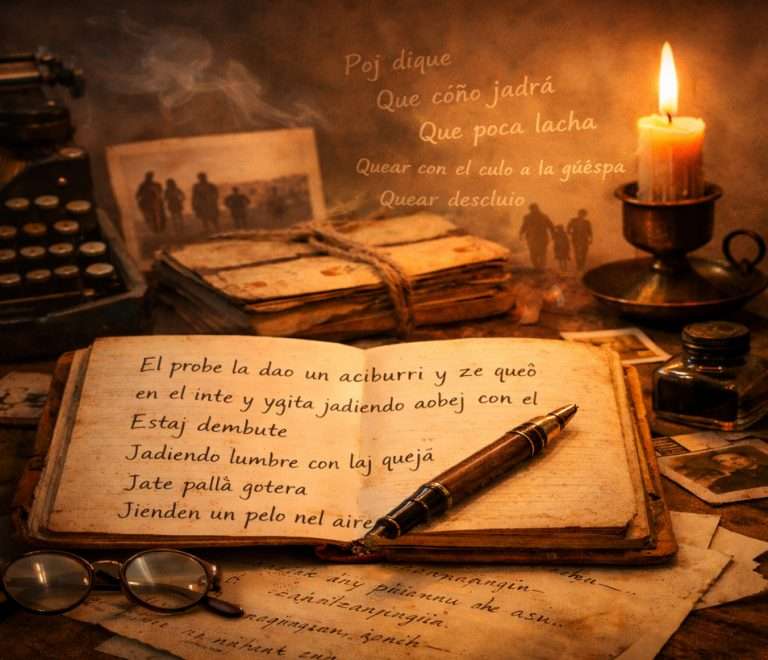 Poj dique
Que cóño jadrá
Que poca lacha
Quear con el culo a la gúéspa
Quear descluio
El probe la dao un aciburri y ze queô
en el inte y ygita jadiendo aobej con el
Estaj dembute
Jadiendo lumbre con laj quejâ
Jate pallâ gotera
Jienden un pelo nel aire